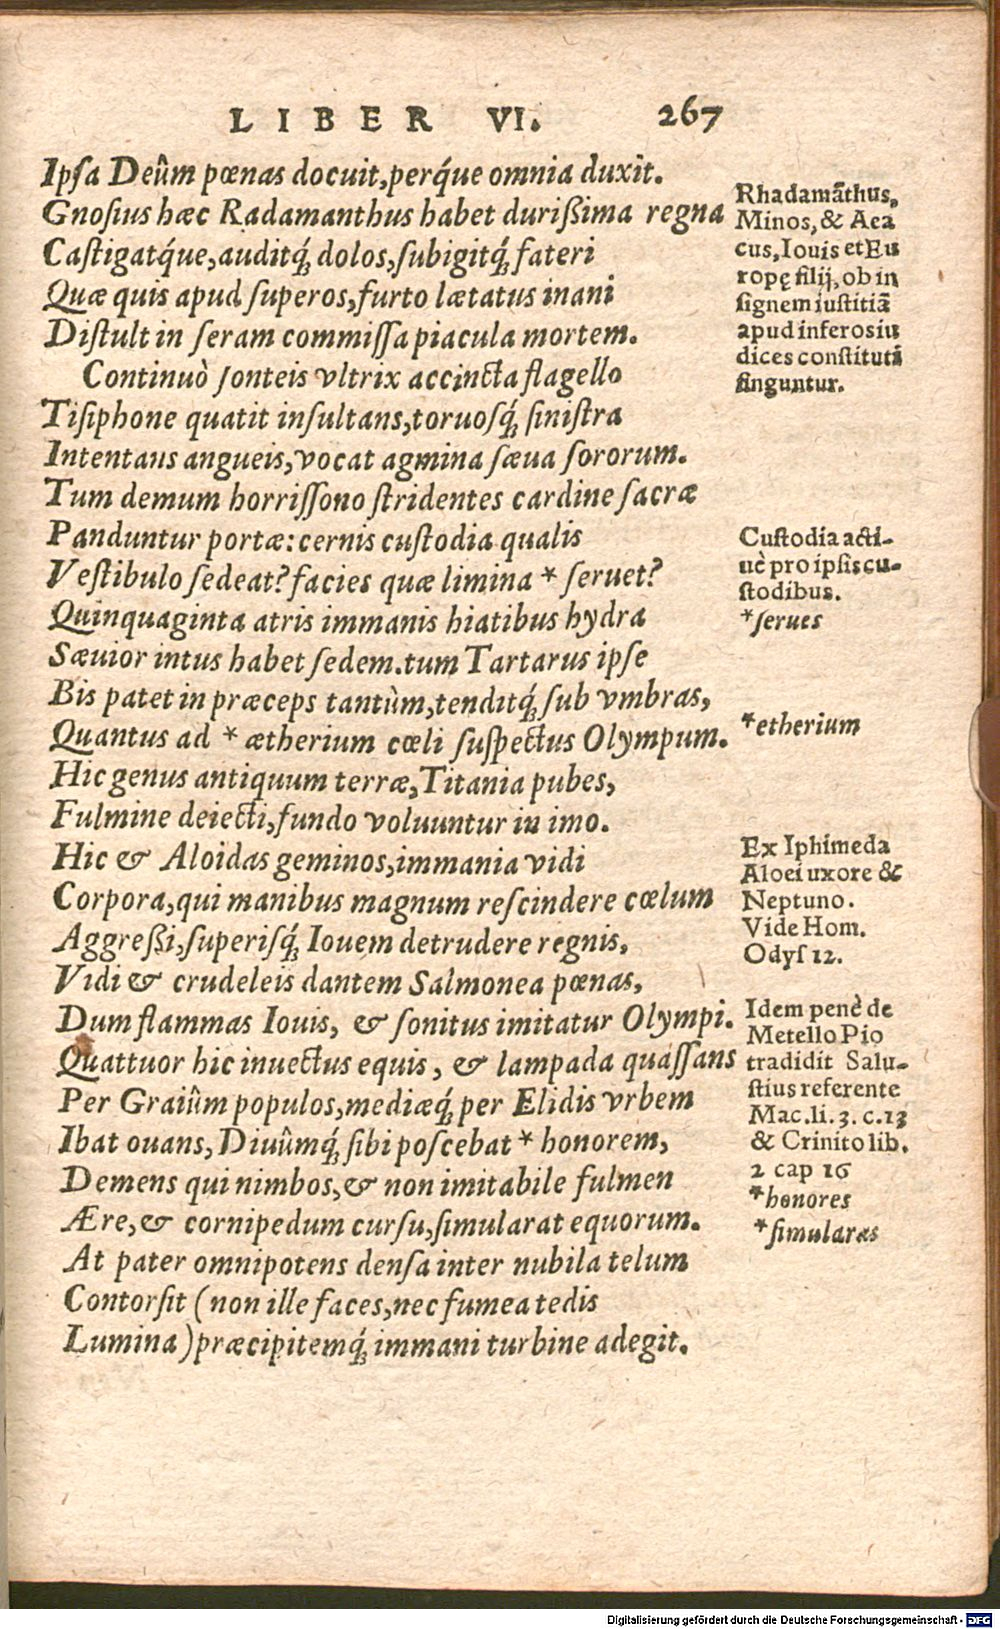 LIBER VI. 267
Ipſa Deûm pœnas docuit, perq́ue omnia duxit.
Gnoſius hæc Radamanthus habet durißima regna
Caſtigatq́ue, auditq́ꝫ dolos, ſubigitq́ꝫ fateri
Quæ quis apud ſuperos, furto lætatus inani
Diſtult in ſeram commiſſa piacula mortem.
Continuò ſonteis vltrix accincta flagello
Tiſiphone quatit inſultans, toruoſq́ꝫ ſiniſtra
Intentans angueis, vocat agmina ſæua ſororum.
Tum demum horriſſono ſtridentes cardine ſacræ
Panduntur portæ: cernis cuſtodia qualis
Veſtibulo ſedeat? facies quæ limina * ſeruet?
Quinquaginta atris immanis hiatibus hydra
Sæuior intus habet ſedem. tum Tartarus ipſe
Bis patet in præceps tantùm, tenditq́ꝫ ſub vmbras,
Quantus ad * ætherium cœli ſuſpectus Olympum.
Hic genus antiquum terræ, Titania pubes,
Fulmine deiecti, fundo voluuntur in imo.
Hic & Aloidas geminos, immania vidi
Corpora, qui manibus magnum reſcindere cœlum
Aggreßi, ſuperiſq́ꝫ Iouem detrudere regnis,
Vidi & crudeleis dantem Salmonea pœnas,
Dum flammas Iouis, & ſonitus imitatur Olympi.
Quattuor hic inuectus equis, & lampada quaſſans
Per Graiûm populos, mediæq́ꝫ per Elidis vrbem
Ibat ouans, Diuûmq́ꝫ ſibi poſcebat * honorem,
Demens qui nimbos, & non imitabile fulmen
Ære, & cornipedum curſu, ſimularat equorum.
At pater omnipotens denſa inter nubila telum
Contorſit (non ille faces, nec fumea tedis
Lumina) præcipitemq́ꝫ immani turbine adegit.
Rhadamãthus,
Minos, & Aea
cus, Iouis et Eu
ropę filij, ob in
ſignem iuſtitiã
apud inferos iu
dices conſtituti
finguntur.
Cuſtodia acti-
uè pro ipſis cu-
ſtodibus.
*ſerues
*etherium
Ex Iphimeda
Aloei uxore &
Neptuno.
Vide Hom.
Odyſ 12.
Idem penè de
Metello Pio
tradidit Salu-
ſtius referente
Mac. li. 3. c. 13
& Crinito lib.
2 cap 16
*honores
*ſimularas
Digitalisierung gefördert durch die Deutsche Forschungsgemeinschaft - DFG